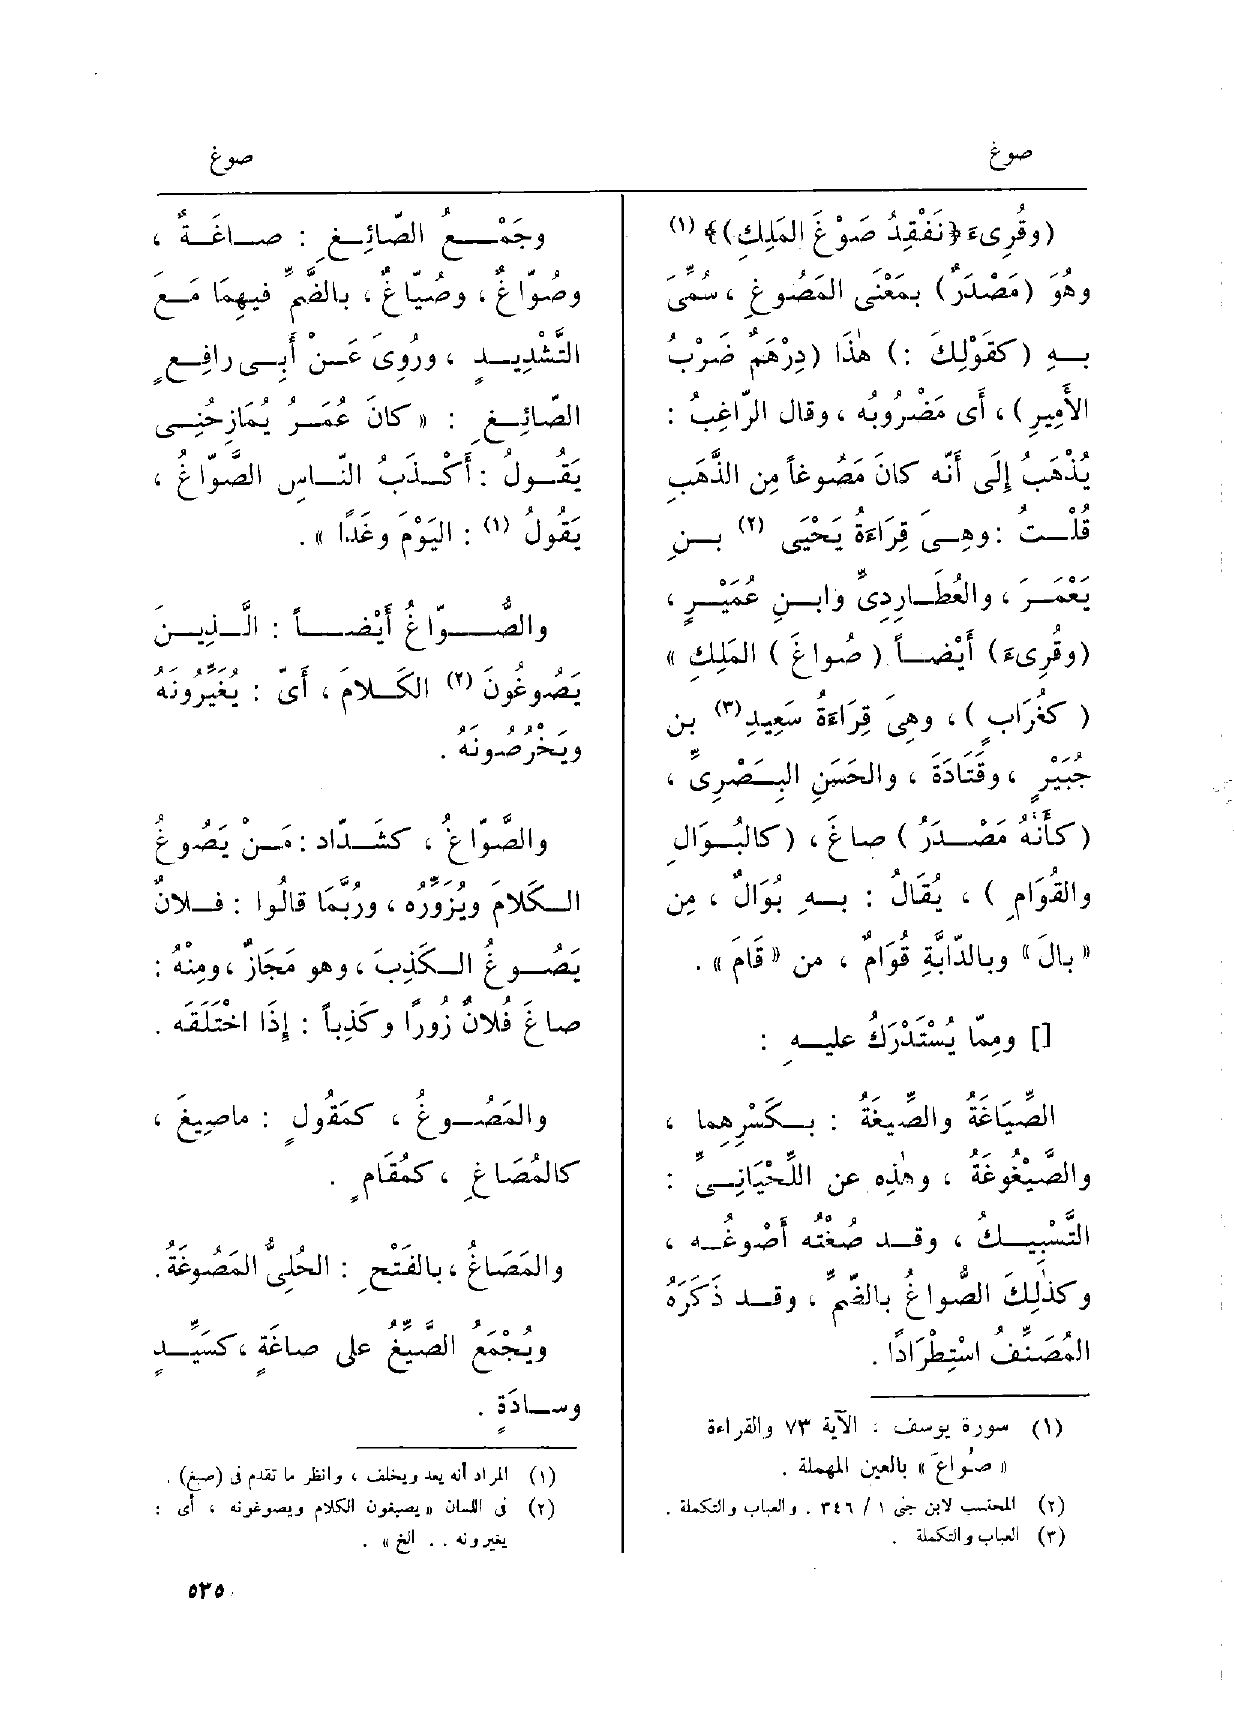 صوغ
صوغ
(وقُرِىءَ ﴿نَفْقِدُ صَوْغَ المَلِكِ)﴾ (١)
وهُوَ (مَصْدَرٌ) بمَعْنَى المَصُوغِ ، سُمِّىَ
بــهِ (كقَوْلِكَ :) هٰذَا (دِرْهَمٌ ضَرْبُ
الأَمِيرِ) ، أَى مَضْرُوبُه ، وقال الرّاغِبُ :
يُذْهَبُ إِلَى أَنَّه كانَ مَصُوغاً مِن الذَّهَبِ
قُلْــتُ : وهِــىَ قِرَاءَةُ يَحْيَى (٢) بــنِ
يَعْمَــرَ ، والعُطَــارِدِىِّ وابــنِ عُمَيْــرٍ ،
(وقُرِىءَ) أَيْضــاً ( صُواغَ ) المَلِكِ »
( كغُرَابٍ ) ، وهِىَ قِرَاءَةُ سَعِيدِ (٣) بن
جُبَيْرٍ ، وقَتَادَةَ ، والحَسَنِ البِــصْرِىِّ ،
(كأَنَّهُ مَصْــدَرُ ) صاغَ ، (كالبُــوَالِ
والقُوَامِ ) ، يُقَالُ : بــهِ بُوَالٌ ، مِن
« بالَ » وبالدّابَّةِ قُوَامٌ ، من « قَامَ » .
[] ومِمّا يُسْتَدْرَكُ عليــهِ :
الصِّيَاغَةُ والصِّيغَةُ : بــكَسْرِهِما ،
والصَّيْغُوغَةُ ، وهٰذِه عن اللِّحْيَانِــىِّ :
التَّسْبِيــكُ ، وقــد صُغْتُه أَصُوغُــه ،
وكذٰلِكَ الصُّواغُ بالضَّمِّ ، وقــد ذَكَرَهُ
المُصَنِّفُ اسْتِطْرَادًا .
(١) سورة يوسف : الآية ٧٣ والقراءة
« صُواعَ » بالعين المهملة .
(٢) المحتسب لابن جنى ١ / ٣٤٦ . والعباب والتكملة .
(٣) العباب والتكملة .
وجَمْــعُ الصّائِــغِ : صــاغَــةٌ ،
وصُوّاغٌ ، وصُيّاغٌ ، بالضَّمِّ فيهِمَا مَــعَ
التَّشْدِيــدِ ، ورُوِىَ عَــنْ أَبِــى رافِــعٍ
الصّائِــغِ : « كانَ عُمَــرُ يُمَازِحُنِــى
يَقُــولُ : أَكْــذَبُ النّــاسِ الصَّوّاغُ ،
يَقُولُ (١) : اليَوْمَ وغَدًا » .
والصَّــوّاغُ أَيْضــاً : الَّــذِيــنَ
يَصُوغُونَ (٢) الكَــلامَ ، أَىْ : يُغَيِّرُونَه
ويَخْرُصُونَه .
والصَّوّاغُ ، كشَــدّاد : مَــنْ يَصُوغُ
الــكَلامَ ويُزَوِّرُه ، ورُبَّمَا قالُوا : فــلانٌ
يَصُــوغُ الــكَذِبَ ، وهو مَجَازٌ ، ومِنْهُ :
صاغَ فُلانٌ زُورًا وكَذِباً : إِذَا اخْتَلَقَه .
والمَصُــوغُ ، كمَقُولٍ : ماصِيغَ ،
كالمُصَاغِ ، كمُقَامٍ .
والمَصَاغُ ، بالفَتْحِ : الحُلِىُّ المَصُوغَةُ .
ويُجْمَعُ الصَّيِّغُ على صاغَةٍ ، كسَيِّــدٍ
وســادَةٍ .
(١) المراد أنه يعد ويخلف ، وانظر ما تقدم فى (صبغ) .
(٢) فى اللسان « يصبغون الكلام ويصوغونه ، أى :
يغيرونه . . الخ » .
٥٣٥